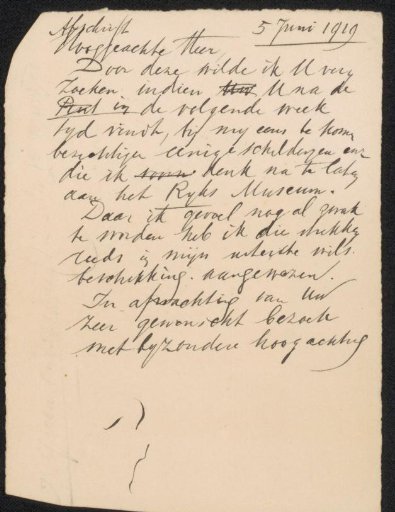 Afschrift 5 Juni 1919
Hooggeachte Heer,
Door deze wilde ik U ver
zoeken, indien U na de
Pint in de volgende week
tyd vindt, by my eens te kom
bezichtigen eenige schilderyen enz
die ik denk na te laten
aan het Ryks Museum.
Daar ik gevoel nog al zwak
te worden heb ik die stukken
reeds in mijn uiterste wils
beschikking aangewezen.
In afwachting van Uw
zeer gewenscht bezoek
met byzondere hoogachting